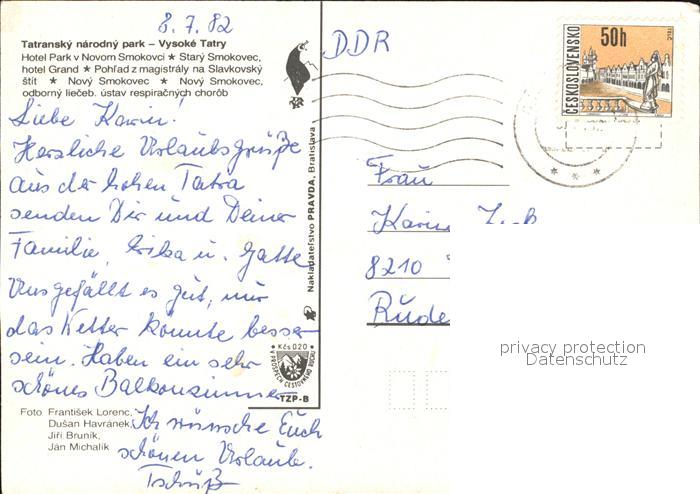 8.7.82
Tatranský národný park – Vysoké Tatry
Hotel Park v Novom Smokovci ★ Starý Smokovec,
hotel Grand ★ Pohľad z magistrály na Slavkovský
štít ★ Nový Smokovec ★ Nový Smokovec,
odborný liečeb. ústav respiračných chorôb
Liebe Karin!
Herzliche Urlaubsgrüße
aus der hohen Tatra
senden Dir und Deiner
Familie, Erika u. Gatte
Uns gefällt es gut, nur
das Wetter könnte besser
sein. Haben ein sehr
schönes Balkonzimmer
Ich wünsche Euch
schönen Urlaub.
Tschüß
Foto: František Lorenc,
Dušan Havránek,
Jiří Bruník,
Ján Michalík
Nakladateľstvo PRAVDA, Bratislava
Kčs 0,20
V PROSPECH CESTOVNÉHO RUCHU
TZP-B
DDR
ČESKOSLOVENSKO
50h
TELČ
Frau
Karin
8210
Rude
privacy protection
Datenschutz